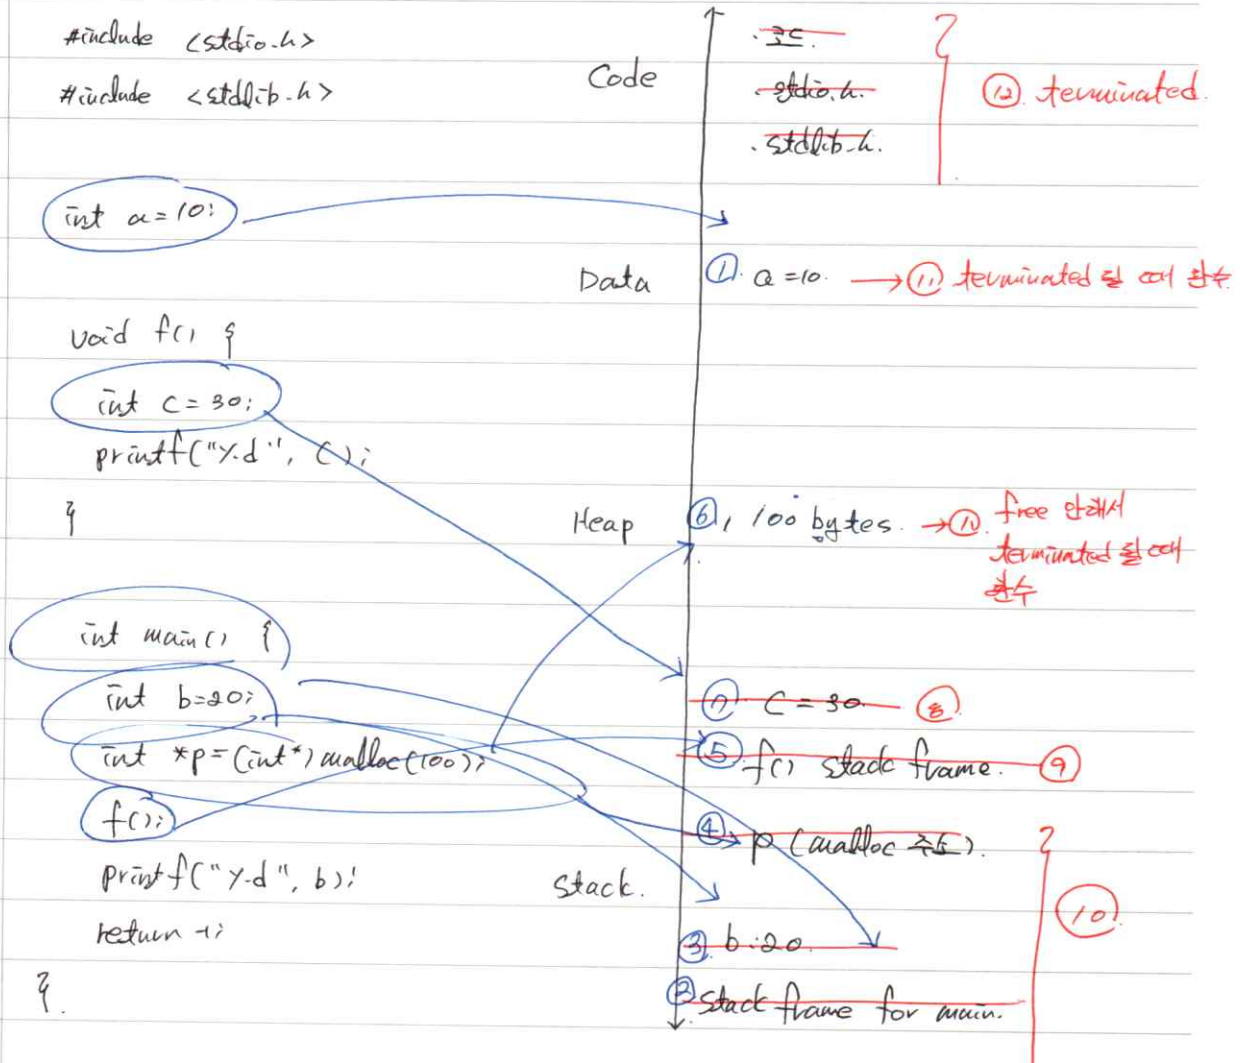 #include <stdio.h>
#include <stdlib.h>
int a=10;
void f() {
int c=30;
printf("%d", c);
}
int main() {
int b=20;
int *p=(int*)malloc(100);
f();
printf("%d", b);
return -1;
}.
Code
· 코드.
· stdio.h.
· stdlib.h.
⑫. terminated.
Data
①. a=10. → ⑪ terminated 될 때 환수
Heap
⑥, 100 bytes. →
free 안해서
terminated 될 때
환수
Stack.
⑦ c=30. ⑧
⑤ f() stack frame. ⑨
④ p (malloc 주소).
⑩
③ b:20.
② stack frame for main.